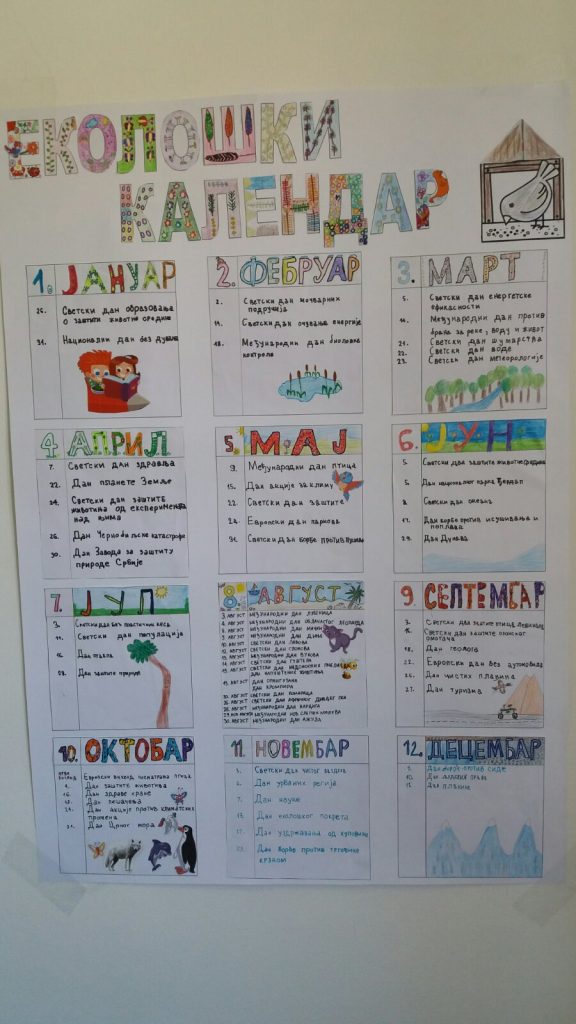 ЕКОЛОШКИ
КАЛЕНДАР
1. ЈАНУАР
26. Светски дан образовања
о заштити животне средине
31. Национални дан без дувана
2. ФЕБРУАР
2. Светски дан мочварних
подручија
14. Светски дан очувања енергије
18. Међународни дан биолошке
контроле
3. МАРТ
5. Светски дан енергетске
ефикасности
14. Међународни дан против
брана за реке, воду и живот
21. Светски дан шумарства
22. Светски дан воде
23. Светски дан метеорологије
4 АПРИЛ
7. Светски дан здравља
22. Дан планете Земље
24. Светски дан заштите
животиња од експеримената
над њима
26. Дан Чернобиљске катастрофе
30. Дан Завода за заштиту
природе Србије
5. МАЈ
9. Међународни дан птица
15. Дан акције за климу
22. Светски дан заштите
24. Европски дан паркова
31. Светски дан борбе против пушења
6. ЈУН
5. Светски дан заштите животне средине
5. Дан националног парка Ђердап
8. Светски дан океана
17. Дан борбе против исушивања и
поплава
29. Дан Дунава
7. ЈУЛ
3. Светски дан без пластичних кеса
11. Светски дан популације
16.
28. Дан заштите природе
8. АВГУСТ
АВГУСТ МЕЂУНАРОДНИ ДАН ОБЛАЧАСТОГ ЛЕОПАРДА
АВГУСТ СВЕТСКИ ДАН ЛАВОВА
АВГУСТ СВЕТСКИ ДАН СЛОНОВА
АВГУСТ МЕЂУНАРОДНИ ДАН ВУКОВА
АВГУСТ СВЕТСКИ ДАН ГУШТЕРА
19. АВГУСТ ДАН ОРАНГУТАНА
АВГУСТ СВЕТСКИ ДАН КОМАРАЦА
9. СЕПТЕМБАР
16. Светски дан заштите озонског
омотача
18. Дан геолога
22. Европски дан без аутомобила
26. Дан чистих планина
27. Дан туризма
10. ОКТОБАР
Дан заштите животиња
Дан здраве хране
Дан пешачења
24. Дан акције против климатских
промена
31. Дан Црног мора
11. НОВЕМБАР
3. Светски дан чистог ваздуха
Дан урбаних регија
7. Дан науке
Дан еколошког покрета
Дан уздржавања од куповине
Дан борбе против трговине
крзном
12. ДЕЦЕМБАР
Дан борбе против сиде
10. Дан људских права
Дан планине